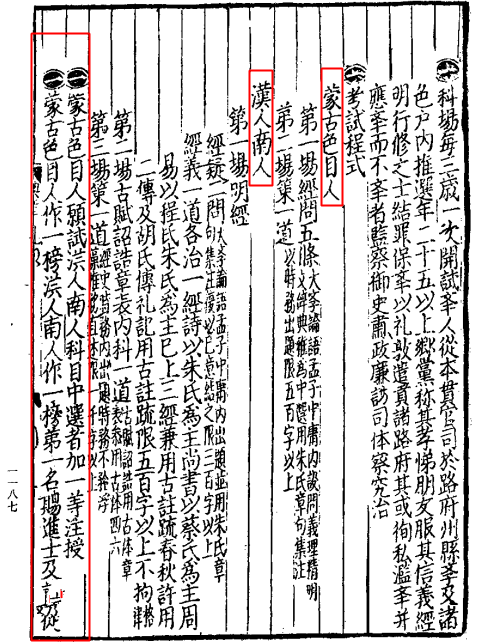 科場每三歲一次開試舉人從本貫官司於路府州縣舉及諸
色户內推選年二十五以上鄉黨稱其孝悌朋友服其信義經
明行修之士結罪保舉以礼敦遣貢諸路府其或徇私濫舉并
應舉而不舉者監察御史肅政廉訪司体察究治
考試程式
蒙古色目人
第一場經問五條大學論語孟子中庸內設問義理精明文辞典雅為中選用朱氏章句集註
第二場策一道以時務出題限五百字以上
漢人南人
第一場明經
經疑二問大學論語孟子中庸內出題並用朱氏章句集註復以己意結之限三百字以上
經義一道各治一經詩以朱氏為主尚書以蔡氏為主周
易以程氏朱氏為主已上三經兼用古註疏春秋許用
三傳及胡氏傳礼記用古註疏限五百字以上不拘格律
第二場古賦詔誥章表內科一道古賦詔誥用古体章表参用古体四六
第三場策一道經史時務內出題不矜浮藻惟務直述限一千字以上
蒙古色目人願試漢人南人科目中選者加一等注授
蒙古色目人作一榜漢人南人作一榜第一名賜進士及 從
一一八七